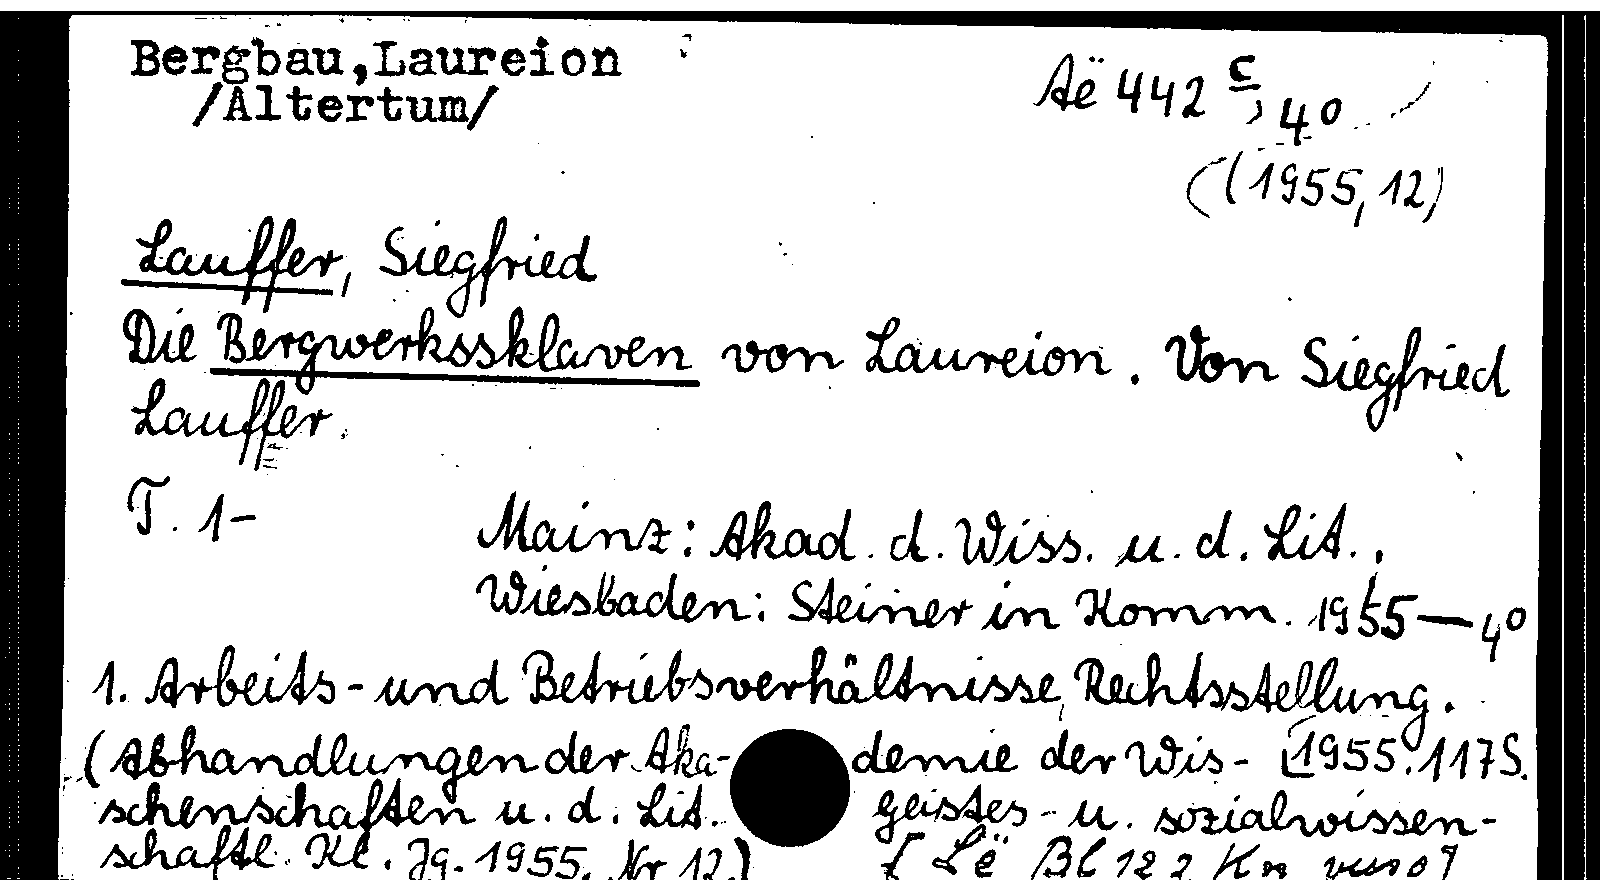 Bergbau,Laureion
/Altertum/
Aë 442 c, 4°
(1955,12)
Lauffer, Siegfried
Die Bergwerkssklaven von Laureion. Von Siegfried
Lauffer.
T. 1-
Mainz: Akad. d. Wiss. u. d. Lit.,
Wiesbaden: Steiner in Komm. 1955— 4°
1. Arbeits- und Betriebsverhältnisse, Rechtsstellung.
(Abhandlungen der Aka- demie der Wis- 1955. 117 S.
schenschaften u. d. Lit. geistes- u. sozialwissen-
schaftl. Kl. Jg. 1955, Nr 12.)